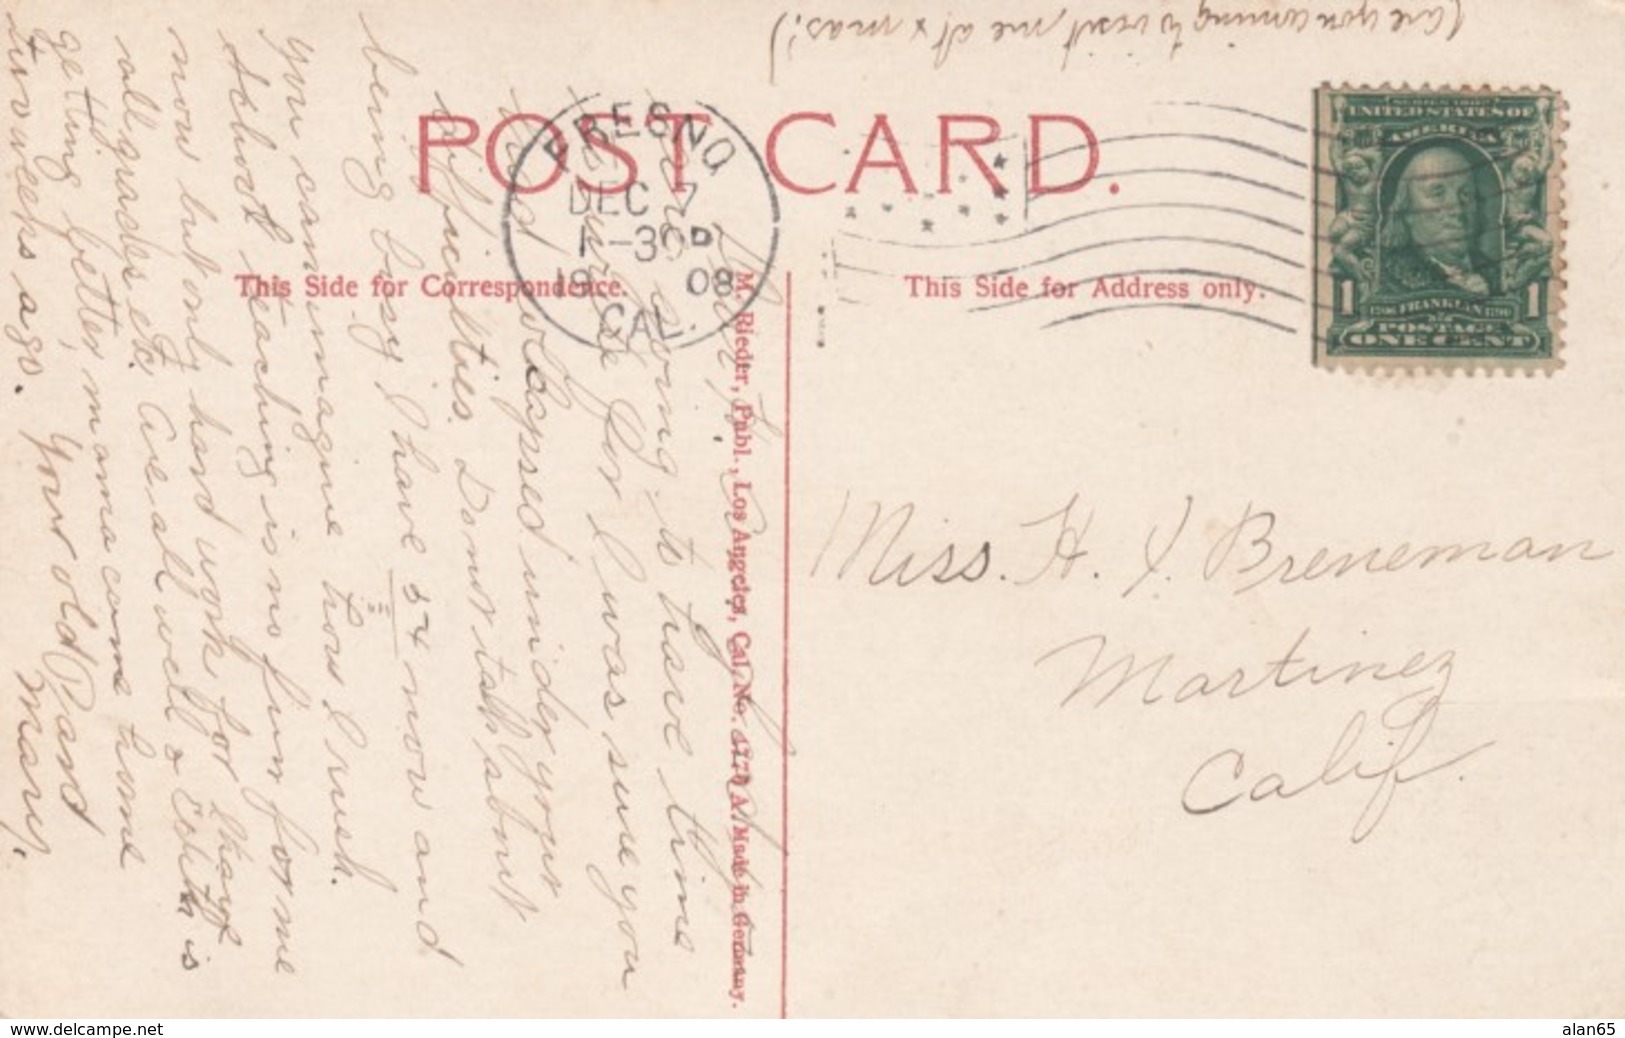 (are you coming to visit me at x mas?)
POST CARD.
FRESNO
DEC 7
1-30P
19 08
CAL.
This Side for Correspondence.
This Side for Address only.
SERIES 1902
UNITED STATES OF
AMERICA
1 FRANKLIN 1
1706 1790
POSTAGE
ONE CENT
M. Rieder, Publ., Los Angeles, Cal. No. 4770 A. Made in Germany.
Miss. H. Y. Breneman
Martinez
Calif.
going to have time
for I was sure you
had collapsed under your
difficulties. Don't talk about
being busy I have 54 now and
you can imagine how I rush.
School teaching is no fun for me
now but only hard work for
all grades etc. Are all well & Edith is
getting better, mama came home
two weeks ago. Your old Pard
Mary.
www.delcampe.net
alan65